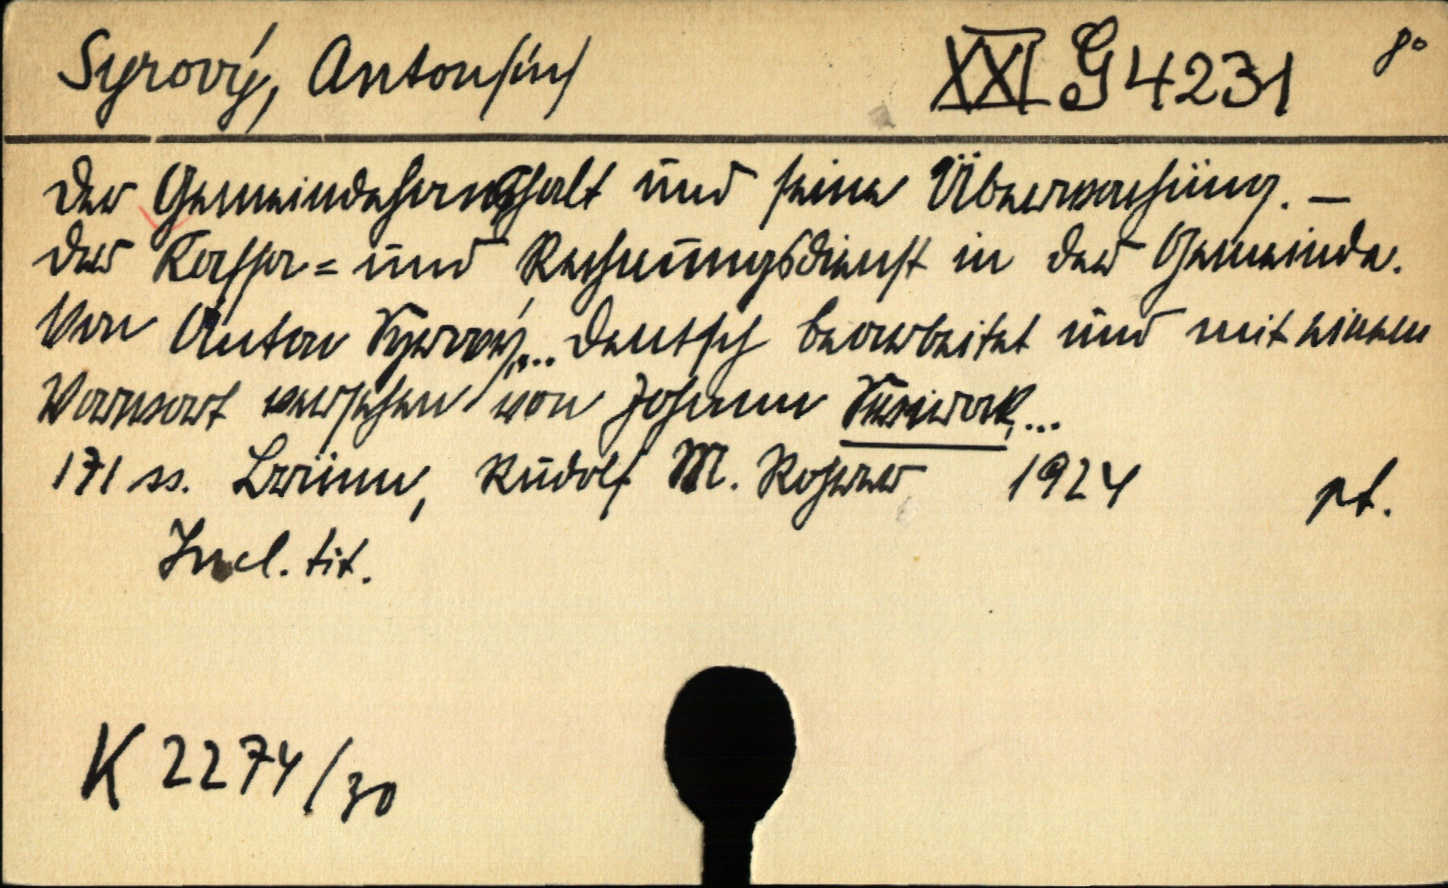 Syrový, Anton/ín/ XXI G 4231 8°
Der Gemeindehaushalt und seine Überwachung. —
Der Kassa= und Rechnungsdienst in der Gemeinde.
Von Anton Syrový,... Deutsch bearbeitet und mit einem
Vorwort versehen von Johann ...
171 ss. Brünn, Rudolf M. Rohrer 1924 pt.
Incl. tit.
K 2274/30